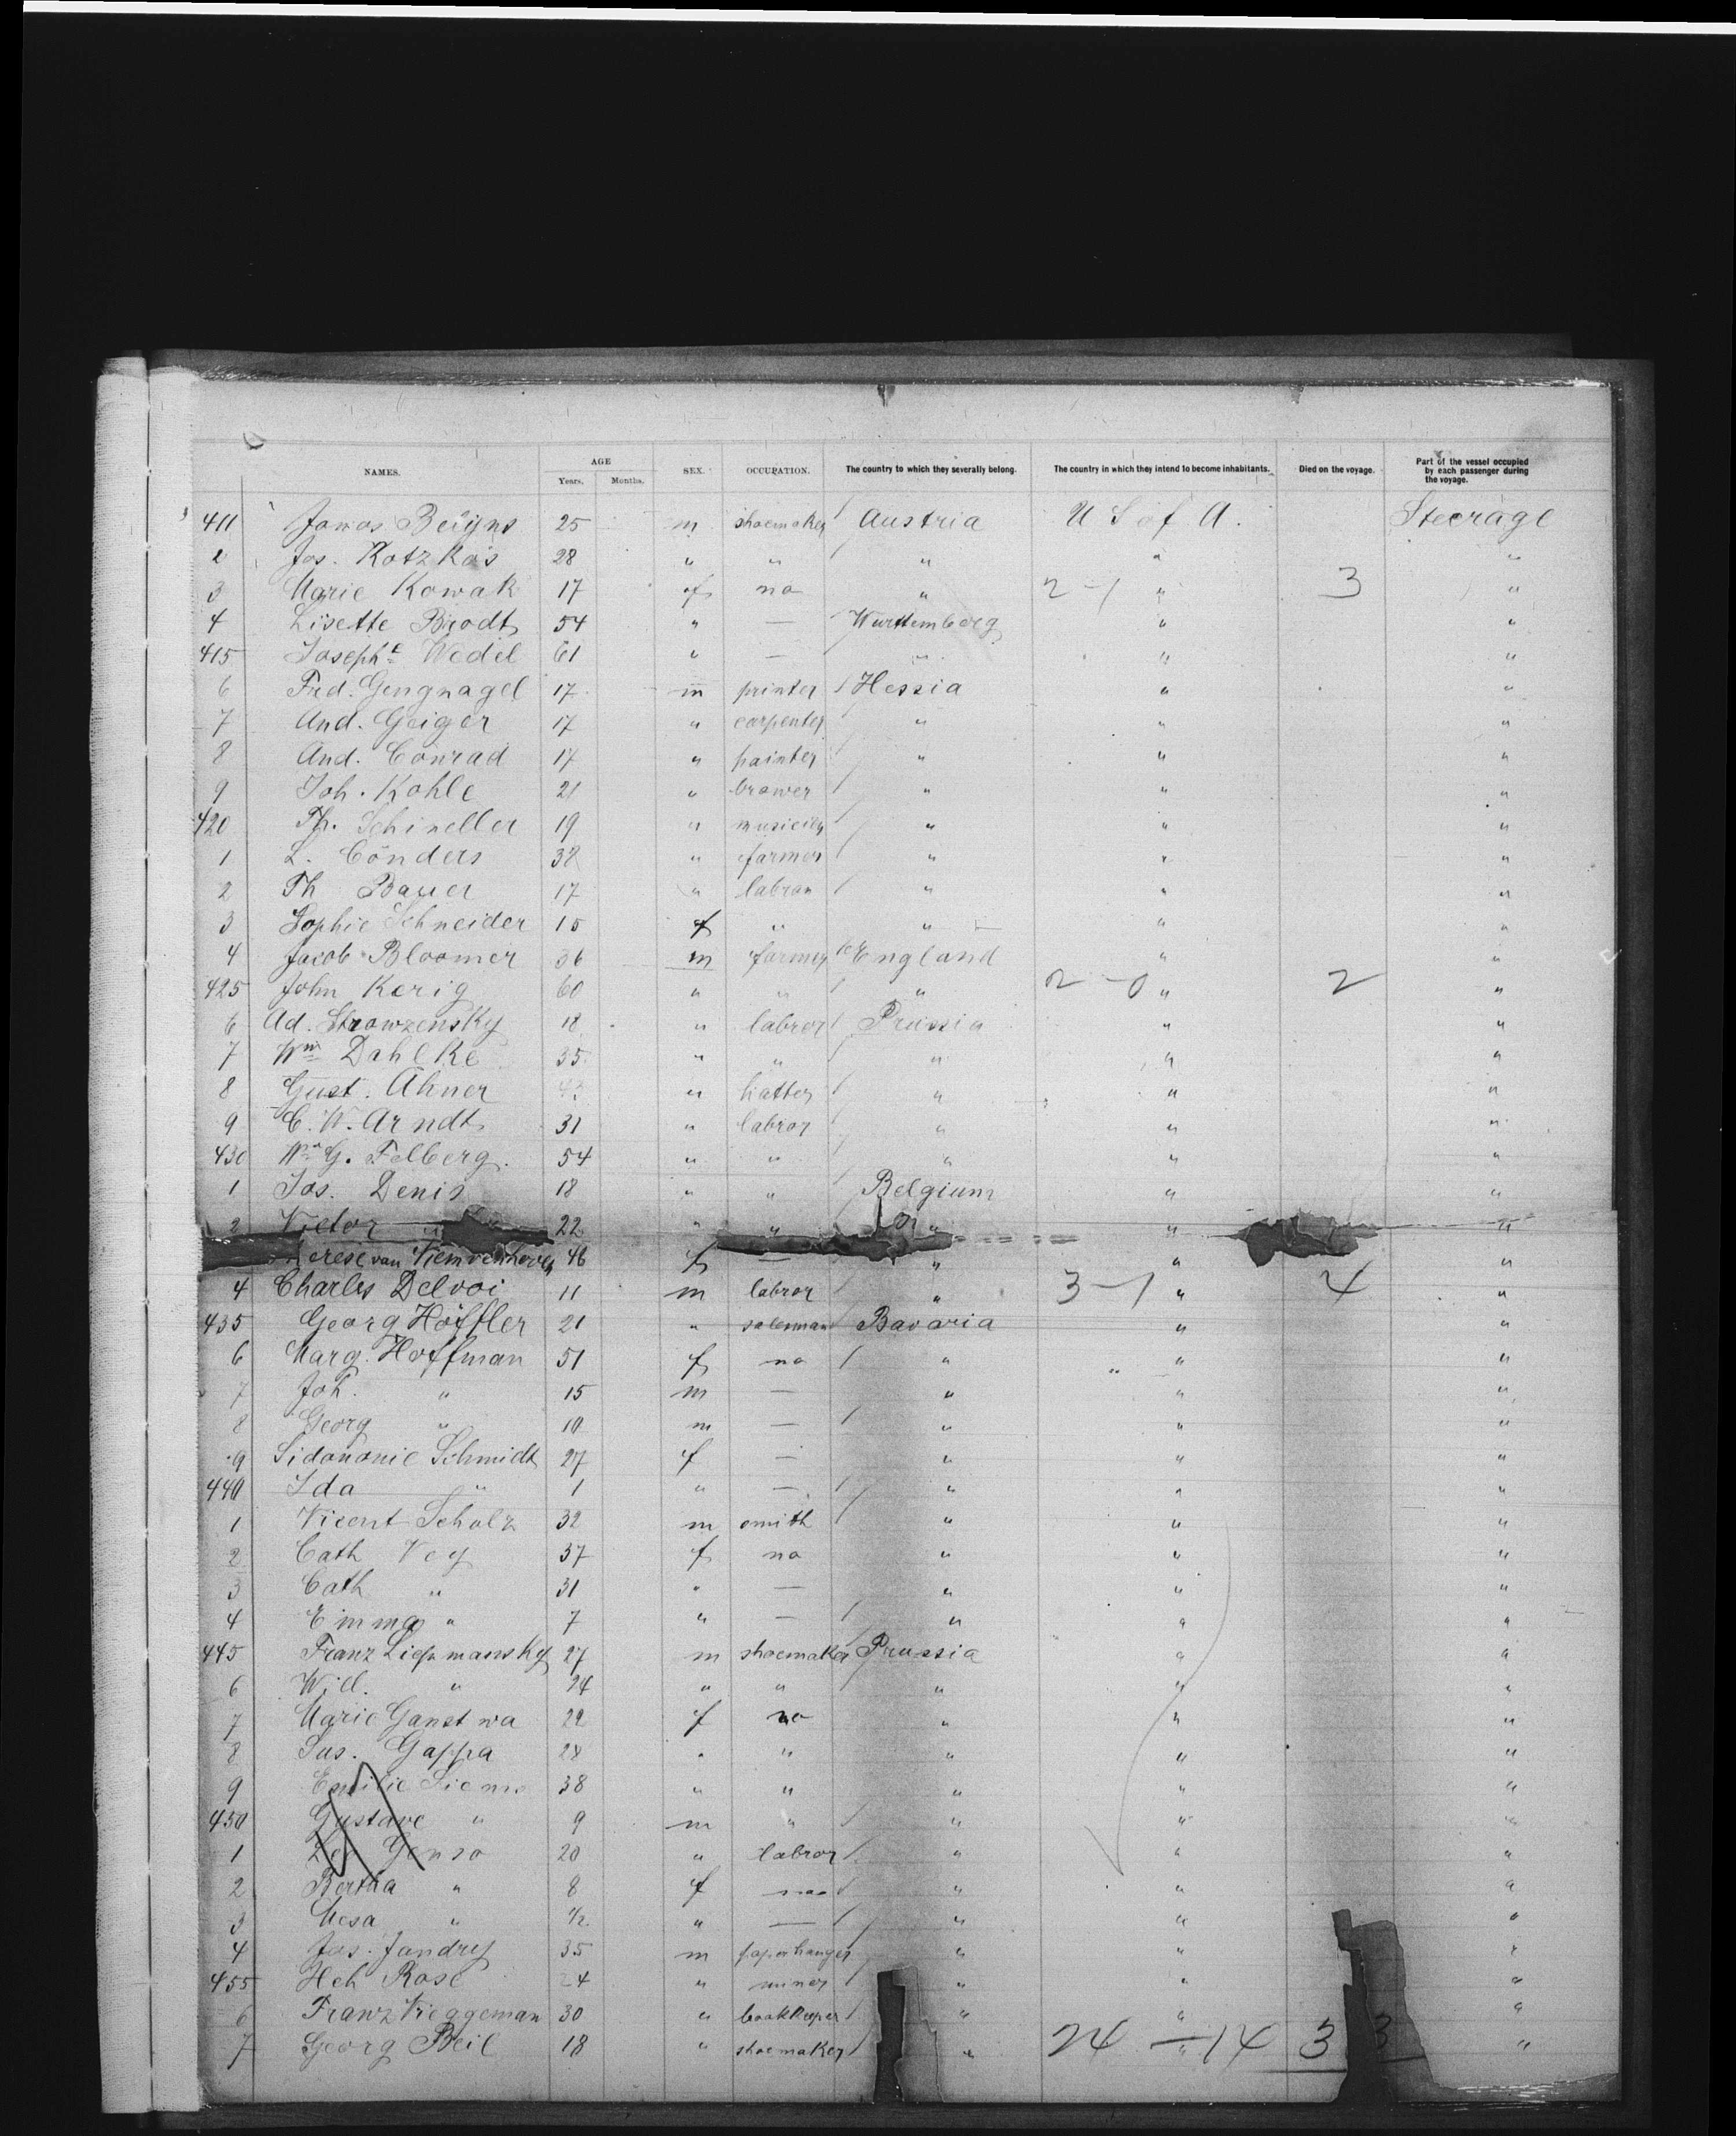 NAMES. AGE SEX. OCCUPATION. The country to which they severally belong. The country in which they intend to become inhabitants. Died on the voyage. Part of the vessel occupied by each passenger during the voyage.
Years. Months.
411 Janos 25 m shoemaker Austria U S of A. Steerage
2 Jos. Kotzkas 28 " " " " "
3 Marie Kowak 17 f no " 2-1 " 3 "
4 Lisette 54 " — Württemberg " "
415 Josephe Wedel 61 " — " " "
6 Frd. Gengnagel 17 m printer Hessia " "
7 And. Geiger 17 " carpenter " " "
8 And. Conrad 17 " painter " " "
9 Joh. Kohle 21 " brower " " "
420 Ph. Schineller 19 " " " "
1 L. Cönders 38 " farmer " " "
2 Th Bauer 17 " labran " " "
3 Sophie Schneider 15 f " " " "
4 Jacob Bloomer 36 m farmer England " "
425 John Kerig 60 " " " 2-0 " 2 "
6 Ad. Strowzensky 18 " labror Prussia " "
7 Wm Dahlke 35 " " " " "
8 Gust. Ahner " hatter " " "
9 C. W. Arndt 31 " labror " " "
430 Wm G. Felberg. 54 " " " " "
1 Jos. Denis 18 " " Belgium " "
2 Victor " 22 " " " " "
erese van 46 f — " " "
4 Charles Delvoi 11 m labror " 3-1 " 4 "
435 Georg Höffler 21 " salesman Bavaria " "
6 Marg. Hoffman 51 f no " " "
7 Joh. " 15 m — " " "
8 Georg " 10 m — " " "
9 Sidononie Schmidt 27 f — " " "
440 Ida " 1 " — " " "
1 Vicent Scholz 32 m smith " " "
2 Cath Vey 37 f no " " "
3 Cath " 31 " — " " "
4 Emma " 7 " — " " "
445 Franz Liepmansky 27 m shoemaker Prussia " "
6 Will. " 24 " " " " "
7 Marie Ganstwa 22 f no " " "
8 Sus. Gappa 28 " " " " "
9 Emilie 38 " " " " "
450 Gustave " 9 m " " " "
1 20 " labror " " "
2 Bertha " 8 f " " "
3 " 1/2 " — " " "
4 Jos. Jandry 35 m paperhanger " " "
455 Hch Rose 24 " miner " " "
6 Franz Vieggeman 30 " bookkeeper " " "
7 Georg Beil 18 " shoemaker " 24 — 14 " 3 3 "